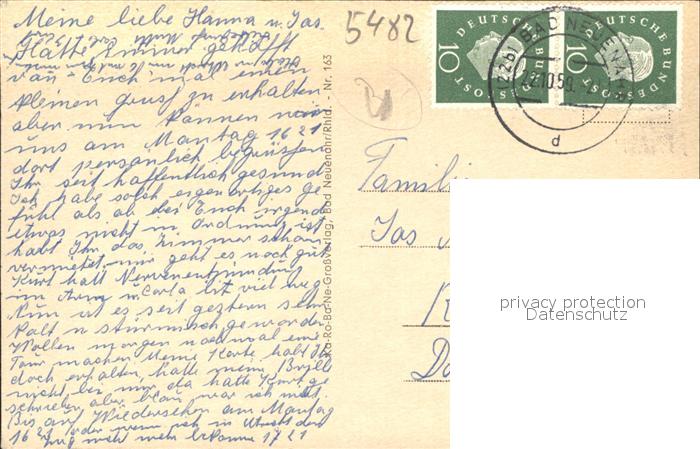 Meine liebe Hanna u. Jas.
Hätte immer gehofft
von Euch mal einen
kleinen Gruss zu erhalten
aber nun können wir
uns am Montag 16 21
dort persönlich begrüssen
Ihr seit hoffentlich gesund
Ich habe solch eigenartiges ge
fühl als ob bei Euch irgend
etwas nicht in Ordnung ist
habt Ihr das Zimmer schon
vermietet, mir geht es noch gut
Kurt hatt Nervenentzündung
im Arm u. Carla
Nun ist es seit gestern sehr
kalt u stürmisch geworden
Wollen morgen nochmal eine
Tour machen Meine Karte habt Ihr
doch erhalten, hatte meine Brille
nicht bei mir da hatte Kurt ge
schrieben, aber blau war ich nicht.
Bis auf Wiedersehen am Montag
16 21 oder wenn ich in Utrecht den
Zug nicht mehr bekomme 17 21
5482
DEUTSCHE BUNDESPOST 10
DEUTSCHE BUNDESPOST 10
(22b) BAD NEUENAHR
22.10.59
d
Ka-Ro-Ba-Ne-Großverlag, Bad Neuenahr/Rhld. - Nr. 163
Familie
Jas
privacy protection
Datenschutz